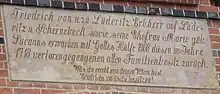 Friedrich von und zu Lüderitz Erbherr auf Lüde-
ritz u Schernebeck sowie seine Ehefrau Marie geb:
Lucanus erwarben mit Gottes Hilfe 1908 diesen im Jahre
1716 verloren gegangenen alten Familienbesitz zurück.
Was du ererbt von deinen Vätern hast,
erwirb es, um es zu besitzen!